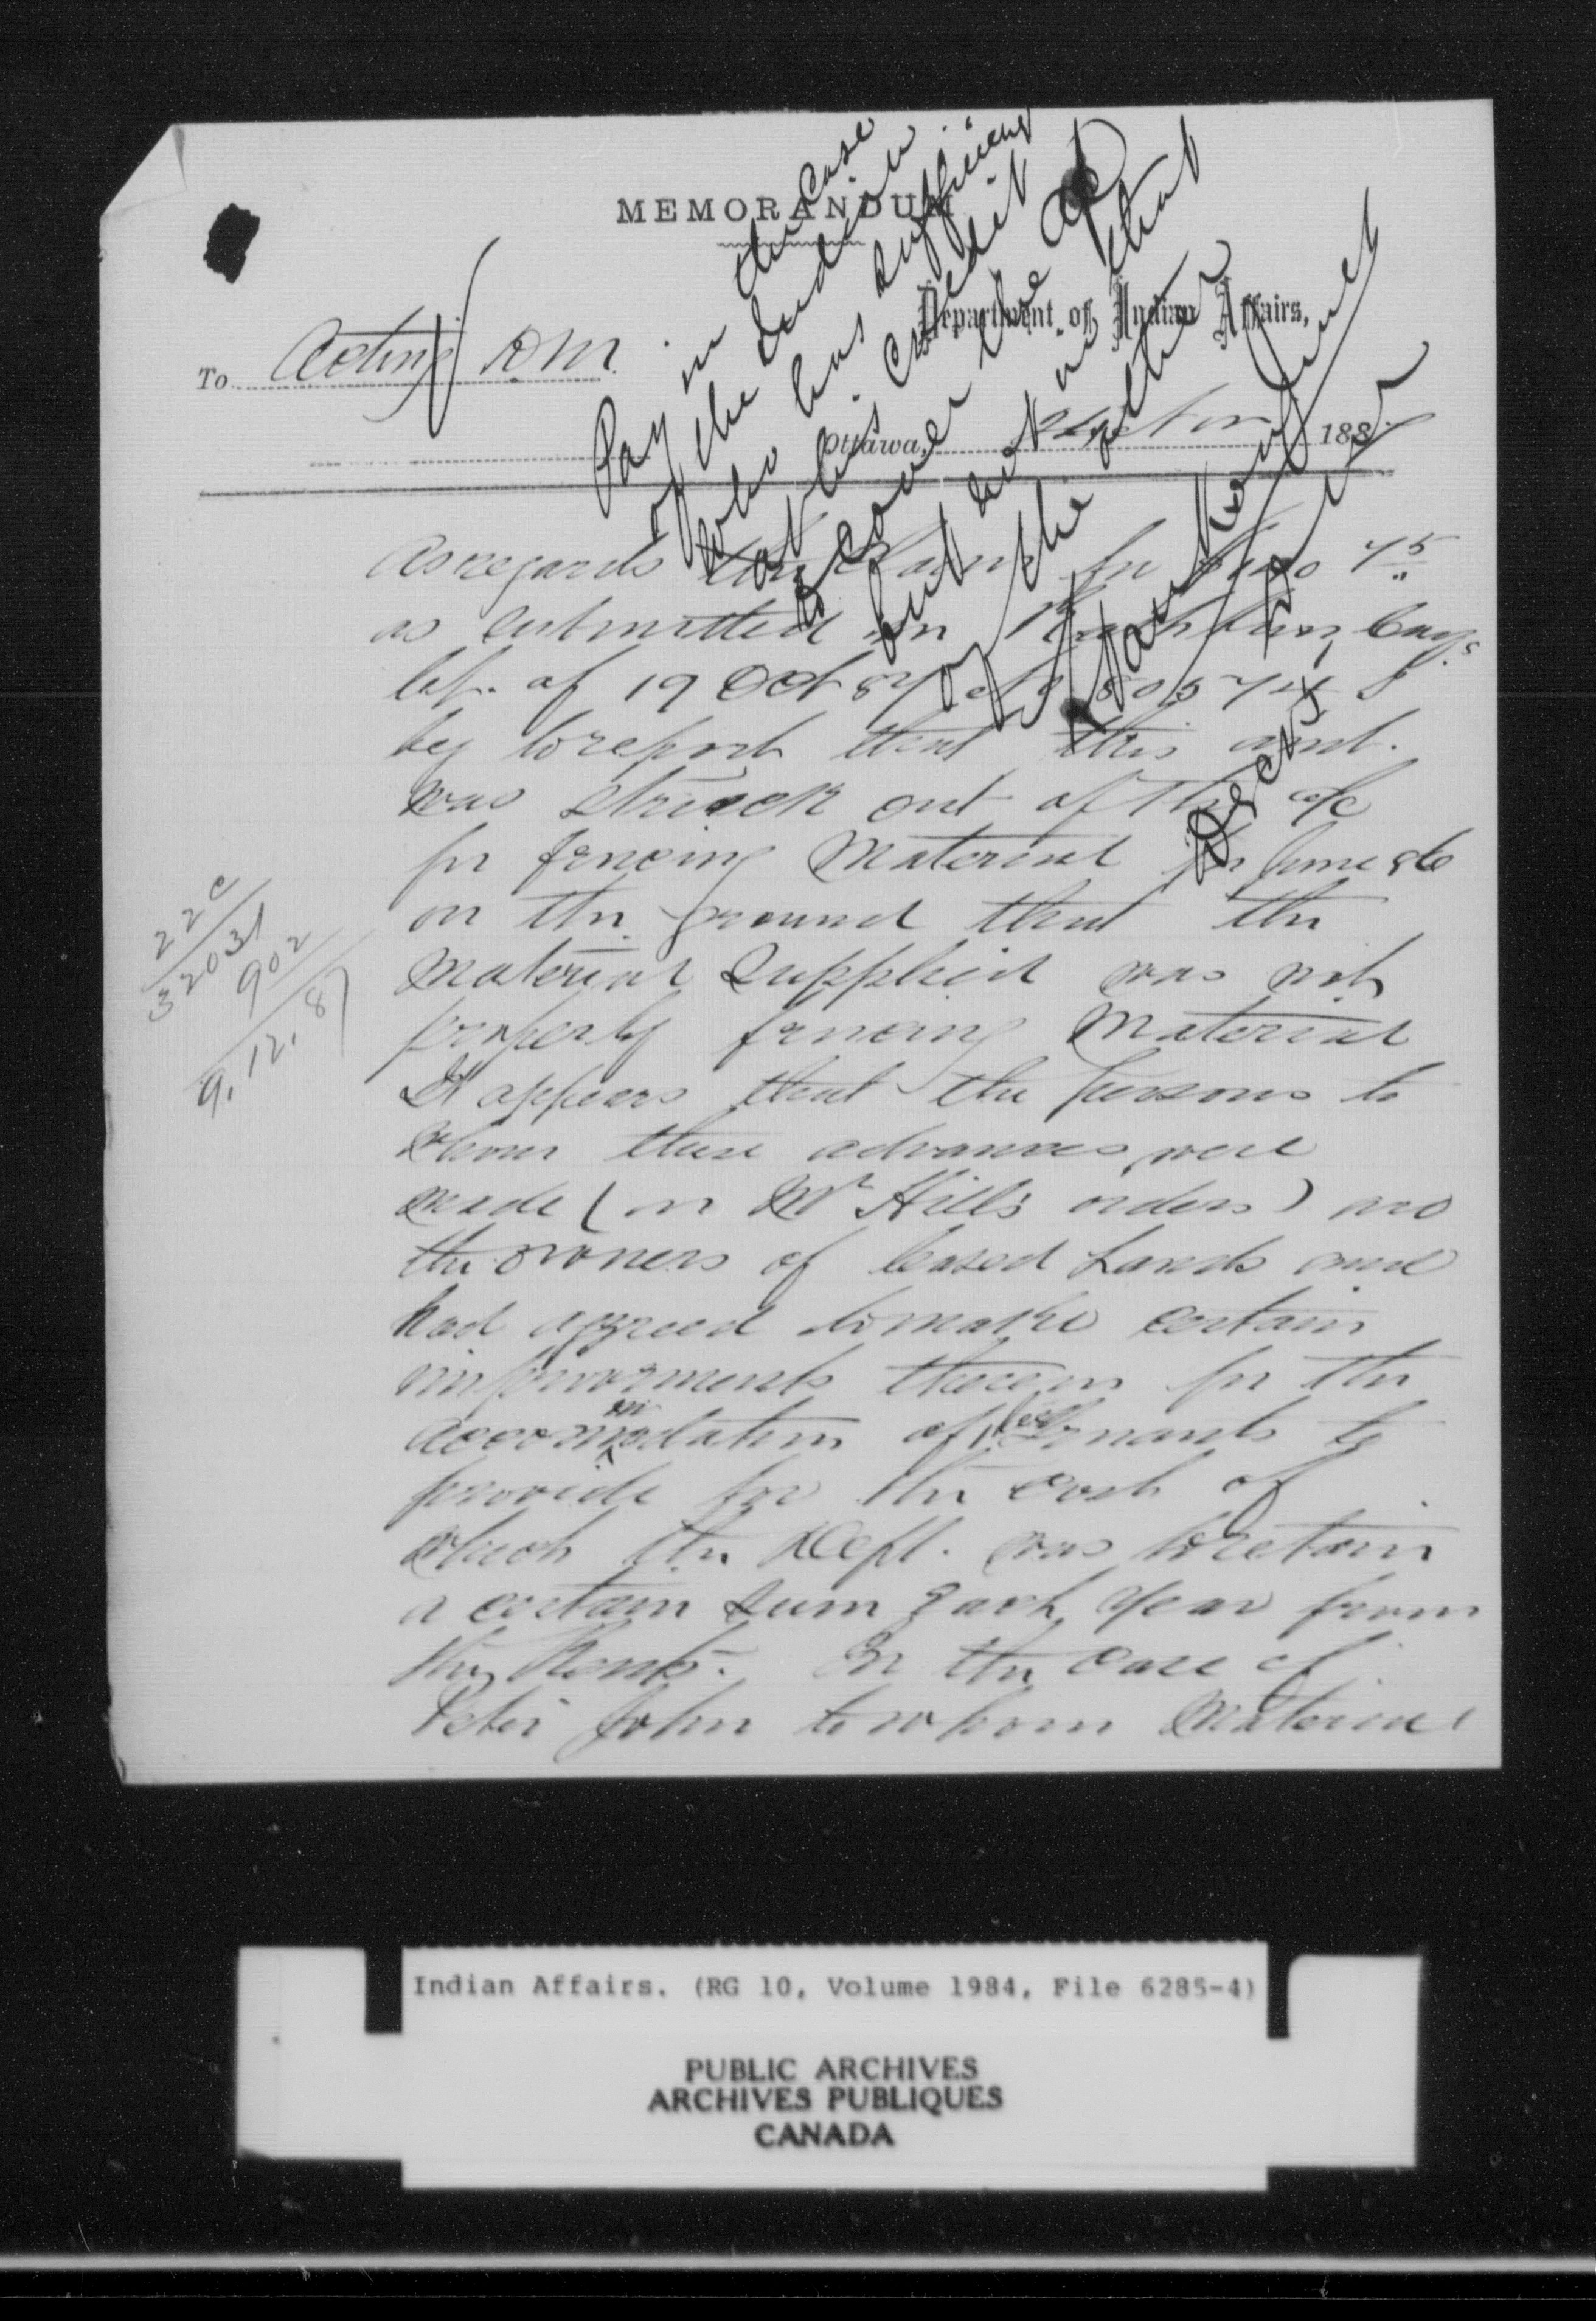 MEMORANDUM
Department of Indian Affairs,
To Acting D.M.
Ottawa, Nov 1887
Pay in the case
of the Indian
who has sufficient
at his credit
to cover the a/c
but not in that
of the other
As regards the claim for 75
as submitted in
let. of 19 Oct 87 I
beg to report that this amt.
was struck out of the a/c
for fencing material for June 86
on the ground that the
material supplied was not
properly fencing material
It appears that the persons to
whom these advances were
made (on Mr Hill's orders) are
the owners of leased lands and
had agreed to make certain
improvements thereon for the
accommodation of tenants to
provide for the cost of
which the Dept. was to retain
a certain sum each year from
the Rents. In the case of
Peter John to whom material
22c
32031
902
9.12.87
Indian Affairs. (RG 10, Volume 1984, File 6285-4)
PUBLIC ARCHIVES
ARCHIVES PUBLIQUES
CANADA